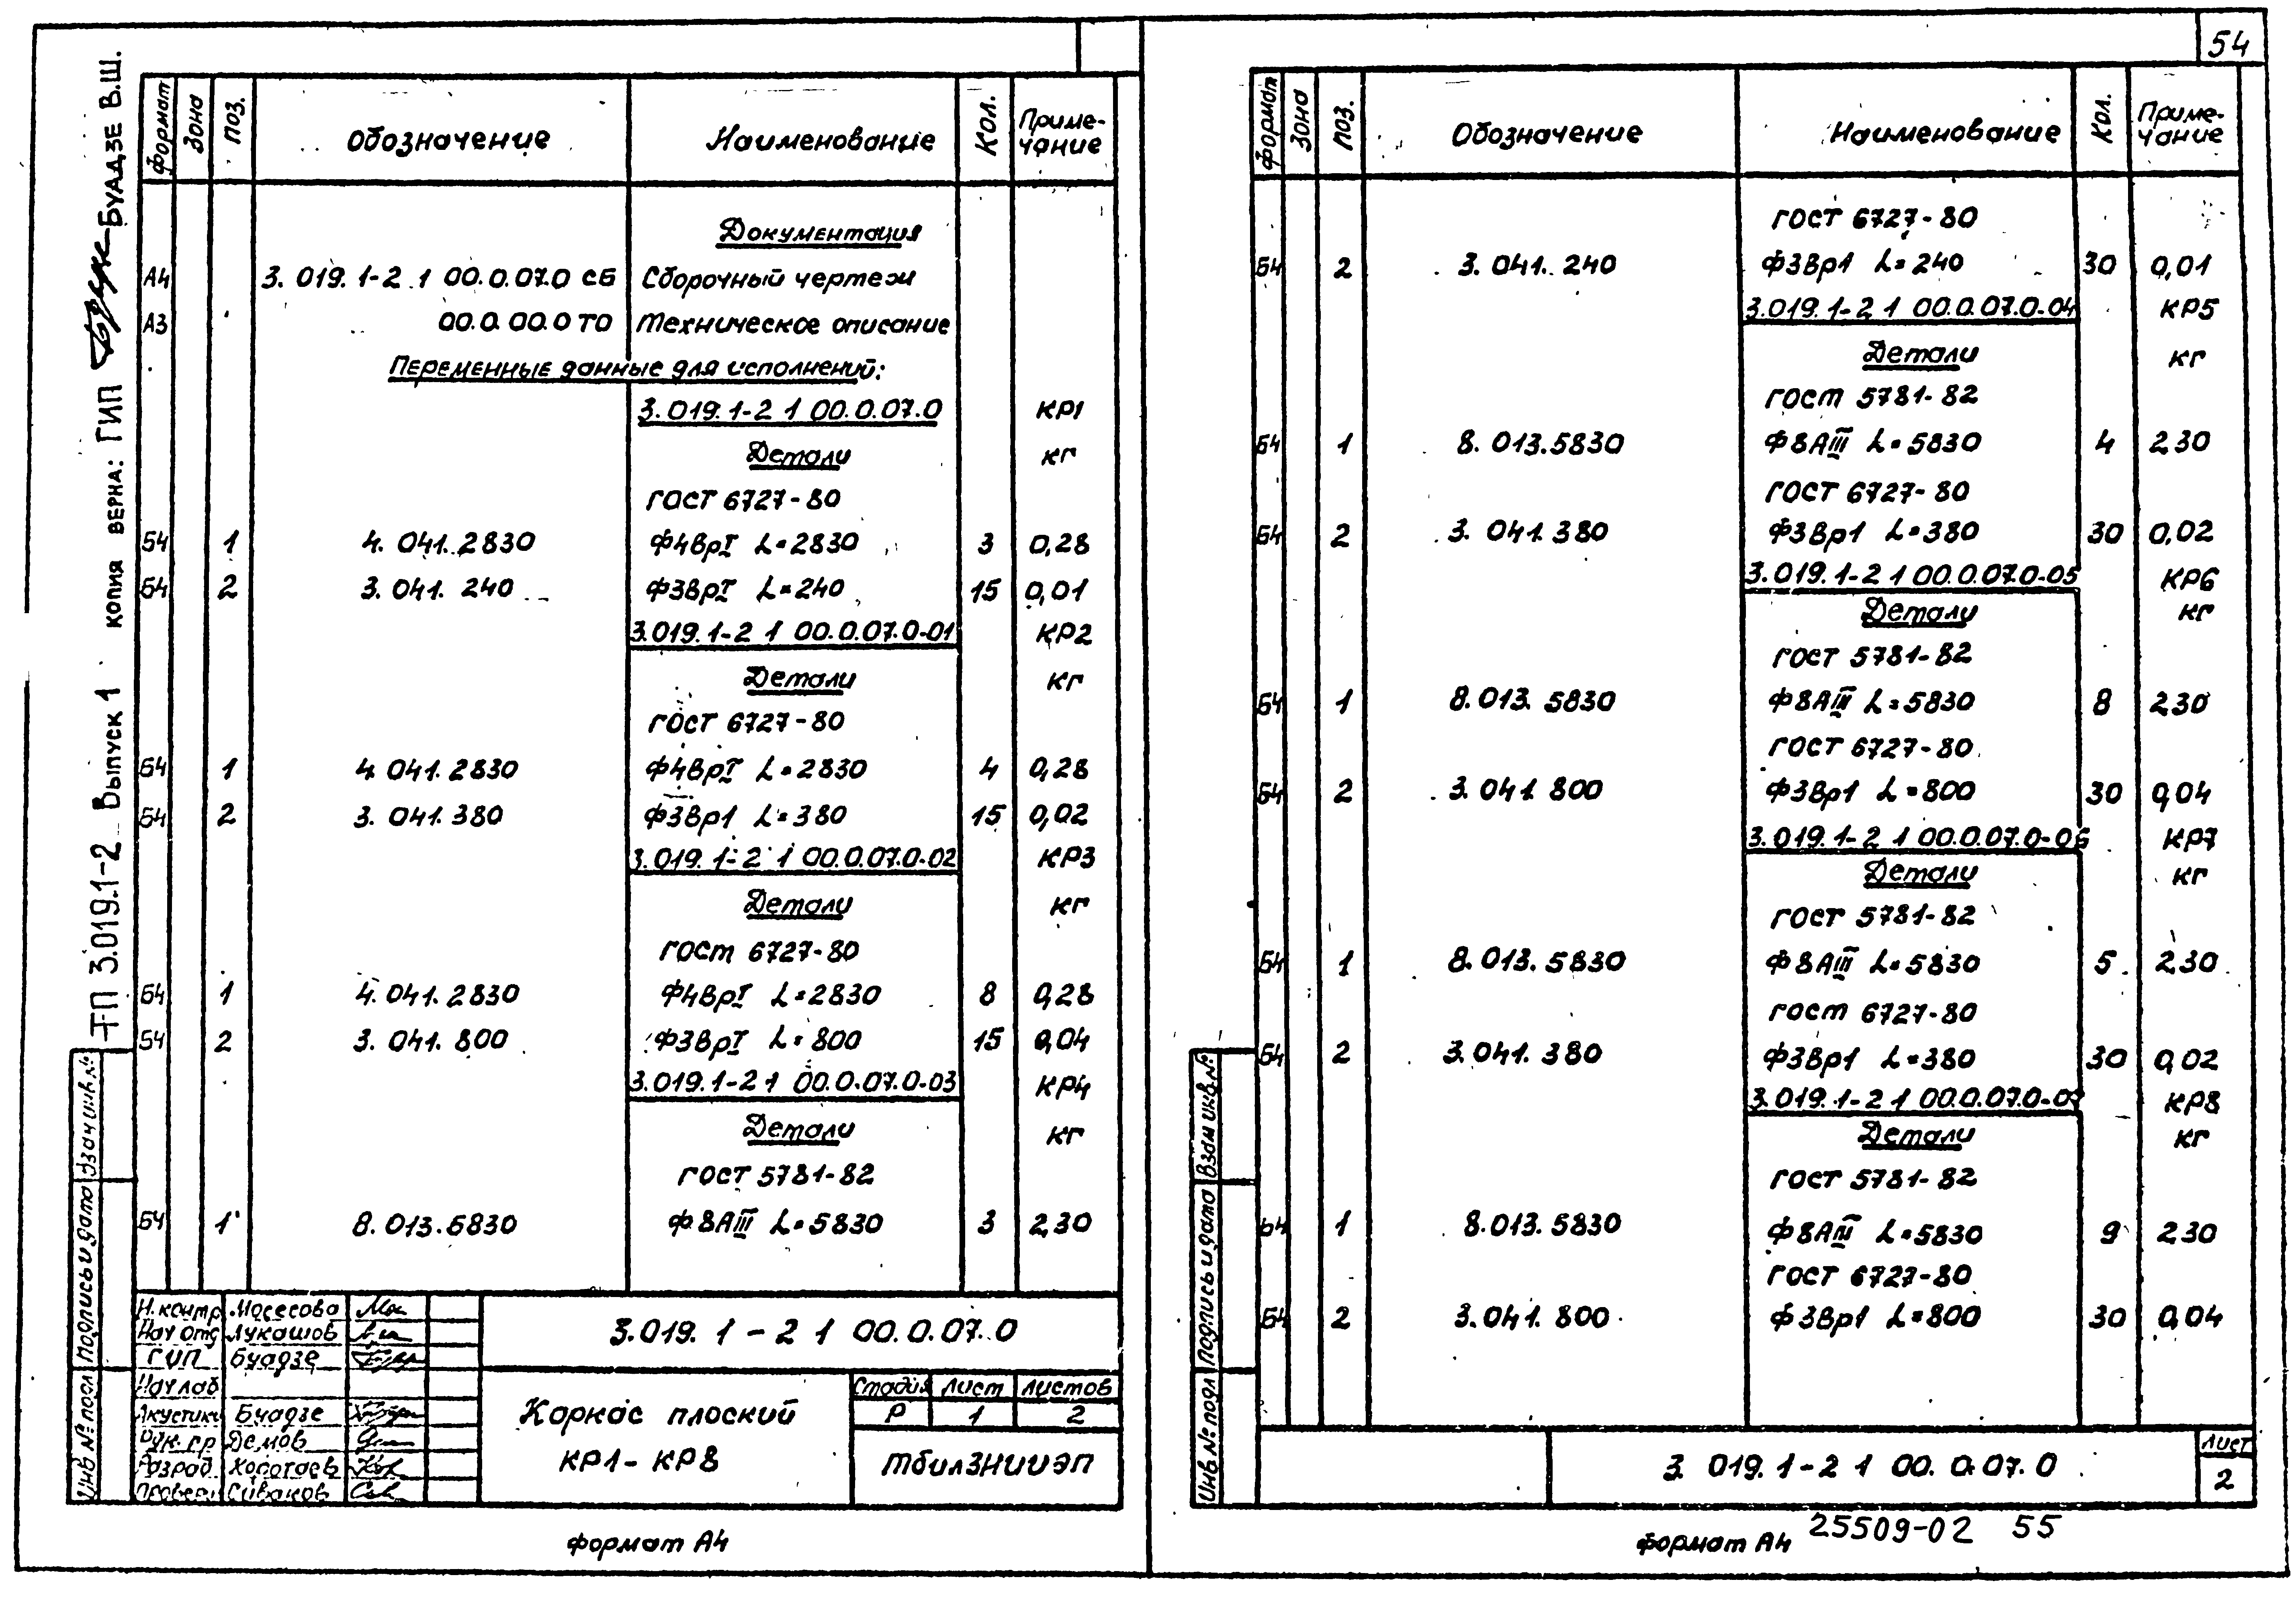 54
ТП 3.019.1-2 Выпуск 1 копия верна: ГИП Буадзе В.Ш.
Формат Зона Поз. Обозначение Наименование Кол. Приме-
чание
Документация
А4 3.019.1-2 1 00.0.07.0 СБ Сборочный чертеж
А3 00.0.00.0 ТО Техническое описание
Переменные данные для исполнений:
3.019.1-2 1 00.0.07.0 КР1
Детали кг
ГОСТ 6727-80
Б4 1 4.041.2830 Ф4ВрI L=2830 3 0,28
Б4 2 3.041.240 Ф3ВрI L=240 15 0,01
3.019.1-2 1 00.0.07.0-01 КР2
Детали кг
ГОСТ 6727-80
Б4 1 4.041.2830 Ф4ВрI L=2830 4 0,28
Б4 2 3.041.380 Ф3Вр1 L=380 15 0,02
3.019.1-2 1 00.0.07.0-02 КР3
Детали кг
ГОСТ 6727-80
Б4 1 4.041.2830 Ф4ВрI L=2830 8 0,28
Б4 2 3.041.800 Ф3ВрI L=800 15 0,04
3.019.1-2 1 00.0.07.0-03 КР4
Детали кг
ГОСТ 5781-82
Б4 1 8.013.5830 Ф8АIII L=5830 3 2,30
Н.контр Мосесова
Нач отд Лукашов
ГИП Буадзе
Нач лаб
Акустики Буадзе
Рук.гр Демов
Разраб. Хоротаев
Провери Сиваков
3.019.1-2 1 00.0.07.0
Каркас плоский
КР1-КР8
Стадия Лист Листов
Р 1 2
ТбилЗНИИЭП
Инв № подл Подпись и дата Взам инв.№
Формат А4
Формат Зона Поз. Обозначение Наименование Кол. Приме-
чание
ГОСТ 6727-80
Б4 2 3.041.240 Ф3Вр1 L=240 30 0,01
3.019.1-2 1 00.0.07.0-04 КР5
Детали кг
ГОСТ 5781-82
Б4 1 8.013.5830 Ф8АIII L=5830 4 2,30
ГОСТ 6727-80
Б4 2 3.041.380 Ф3Вр1 L=380 30 0,02
3.019.1-2 1 00.0.07.0-05 КР6
Детали кг
ГОСТ 5781-82
Б4 1 8.013.5830 Ф8АIII L=5830 8 2,30
ГОСТ 6727-80
Б4 2 3.041.800 Ф3Вр1 L=800 30 0,04
3.019.1-2 1 00.0.07.0-06 КР7
Детали кг
ГОСТ 5781-82
Б4 1 8.013.5830 Ф8АIII L=5830 5 2,30
ГОСТ 6727-80
Б4 2 3.041.380 Ф3Вр1 L=380 30 0,02
3.019.1-2 1 00.0.07.0-07 КР8
Детали кг
ГОСТ 5781-82
Б4 1 8.013.5830 Ф8АIII L=5830 9 2,30
ГОСТ 6727-80
Б4 2 3.041.800 Ф3Вр1 L=800 30 0,04
Инв № подл Подпись и дата Взам инв.№
3.019.1-2 1 00.0.07.0
Лист
2
Формат А4 25509-02 55